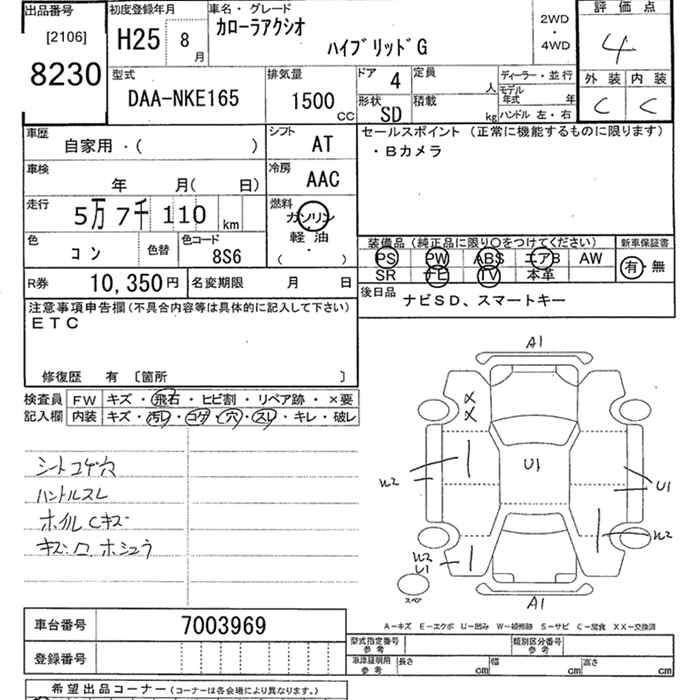 出品番号
[2106]
8230
初度登録年月
H25 8月
車名・グレード
カローラアクシオ
ハイブリッドG
2WD
・
4WD
評価点
4
外装 内装
C C
型式
DAA-NKE165
排気量
1500 CC
ドア 4
定員 人
形状 SD
積載 kg
ディーラー・並行
モデル年式 年
ハンドル 左・右
車歴
自家用・( )
シフト
AT
車検
年 月( 日)
冷房
AAC
走行
5万7千110 km
燃料
ガソリン
軽油
( ・ )
色
コン
色替
色コード
8S6
R券 10,350円
名変期限 月 日
セールスポイント(正常に機能するものに限ります)
・Bカメラ
装備品(純正品に限り○をつけてください)
PS PW ABS エアB AW
SR ナビ TV 本革
新車保証書
有・無
後日品
ナビSD、スマートキー
注意事項申告欄(不具合内容等は具体的に記入して下さい)
ETC
修復歴 有 〔箇所 〕
検査員 FW キズ・飛石・ヒビ割・リペア跡・×要
記入欄 内装 キズ・汚レ・コゲ・穴・スレ・キレ・破レ
シートコゲ穴
ハンドルスレ
ホイルCキズ
A1
U1
U1
U1
A1
スペア
A-キズ E-エクボ U-凹み W-補修跡 S-サビ C-腐食 XX-交換済
車台番号 7003969
登録番号
型式指定番号
参考
類別区分番号
参考
車庫証明用
参考
長さ cm 幅 cm 高さ cm
希望出品コーナー(コーナーは各会場により異なります。)